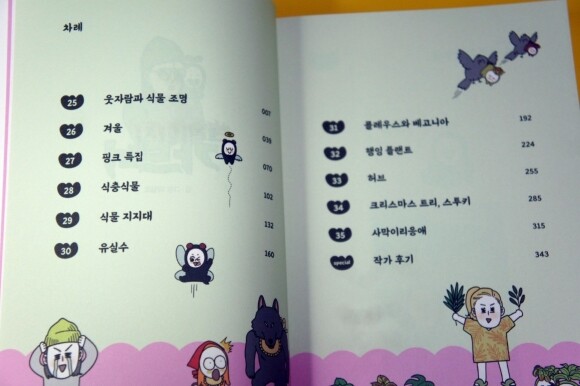 차례
25 웃자람과 식물 조명 007
26 겨울 038
27 핑크 특집 070
28 식충식물 102
29 식물 지지대 132
30 유실수 160
31 콜레우스와 베고니아 192
32 행잉 플랜트 224
33 허브 255
34 크리스마스 트리, 스투키 285
35 사막이리응애 315
special 작가 후기 343